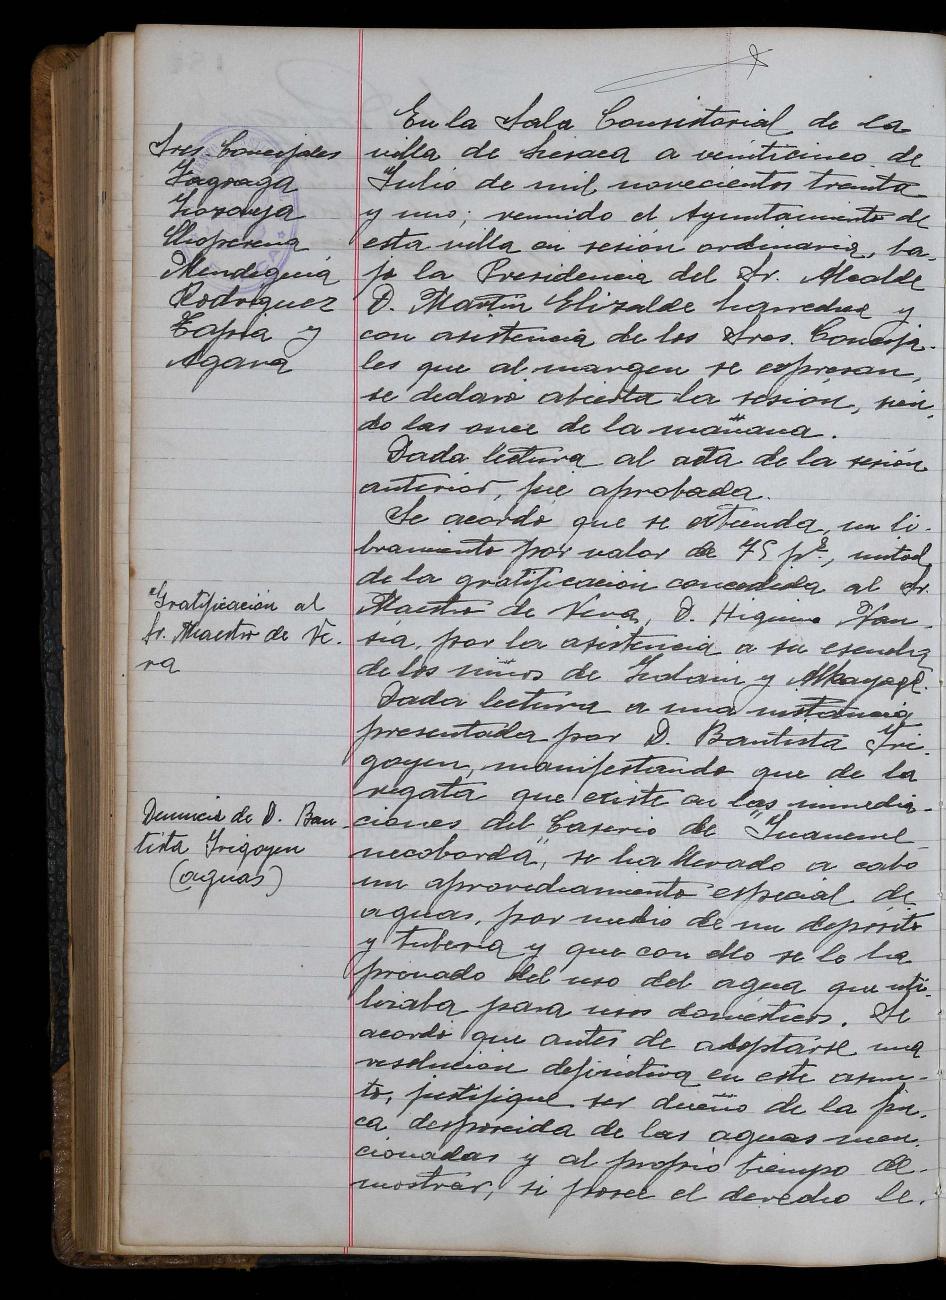 Sres. Concejales
Zagoaga
Goxaeja
Elioperena
Mendeguia
Rodriguez
Tapia y
Agara
En la Sala Consistorial de la
villa de Lesaca a veinticinco de
Julio de mil novecientos treinta
y uno; reunido el Ayuntamiento de
esta villa en sesión ordinaria, ba-
jo la Presidencia del Sr. Alcalde
D. Martin Elizalde y
con asistencia de los Sres. Conceja-
les que al margen se expresan,
se declaró abierta la sesión, sien-
do las once de la mañana.
Dada lectura al acta de la sesión
anterior, fue aprobada.
Se acordó que se extienda un li-
bramiento por valor de 75 pts, mitad
de la gratificación concedida al Sr.
Maestro de Vera, D. Higinio
por la asistencia a su escuela
de los niños de y Alkayaga.
Dada lectura a una instancia
presentada por D. Bautista Iri-
goyen, manifestando que de la
regata que existe en las inmedia-
ciones del Caserio de "Juaneme-
necoborda", se ha llevado a cabo
un aprovechamiento especial de
aguas, por medio de un depósito
y tuberia y que con ello se le ha
privado del uso del agua que uti-
lizaba para usos domésticos. Se
acordó que antes de adoptarse una
resolucion definitiva en este asun-
to, justifique ser dueño de la fin-
ca desposeida de las aguas men-
cionadas y al propio tiempo de-
mostrar, si posee el derecho le-
Gratificación al
Sr. Maestro de Ve-
ra
Denuncia de D. Bau-
tista Irigoyen
(aguas)